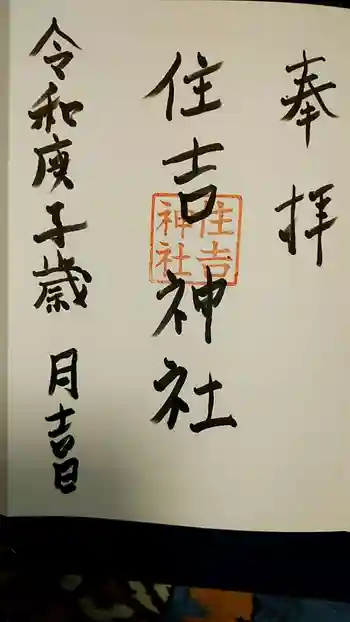 奉拝
住吉神社
住吉
神社
令和庚子歳 月吉日